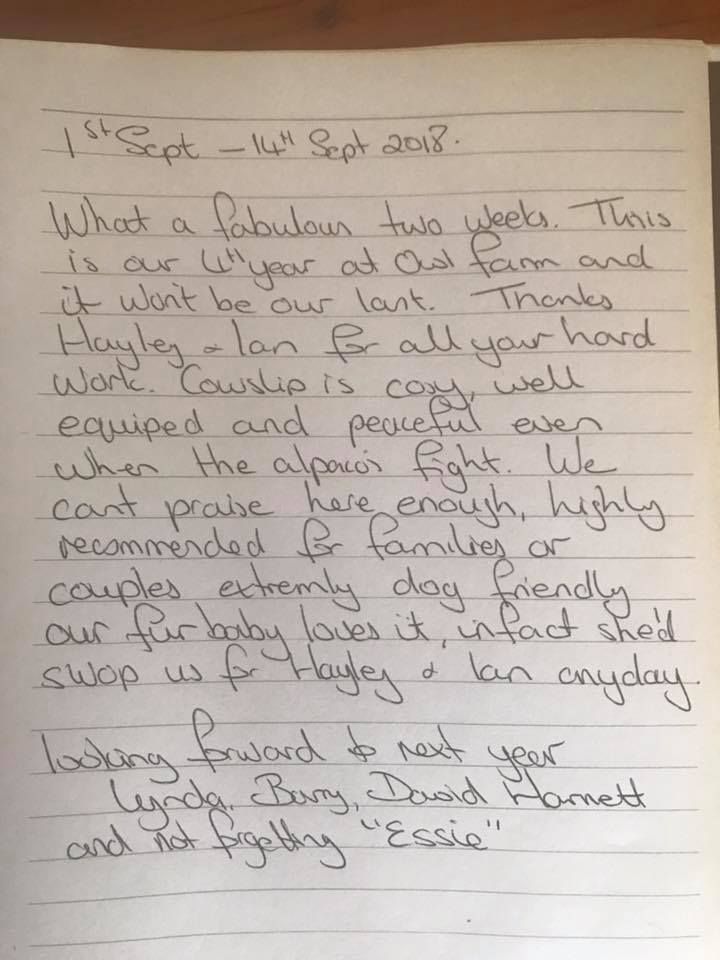 1st Sept - 14th Sept 2018.
What a fabulous two weeks. This
is our 4th year at Owl farm and
it won't be our last. Thanks
Hayley & Ian for all your hard
work. Cowslip is cosy, well
equiped and peaceful even
when the alpaca's fight. We
cant praise here enough, highly
recommended for families or
couples extremly dog friendly
our fur baby loves it, infact she'd
swop us for Hayley & Ian anyday.
looking forward to next year
Lynda, Barry, David Harnett
and not forgetting "Essie"